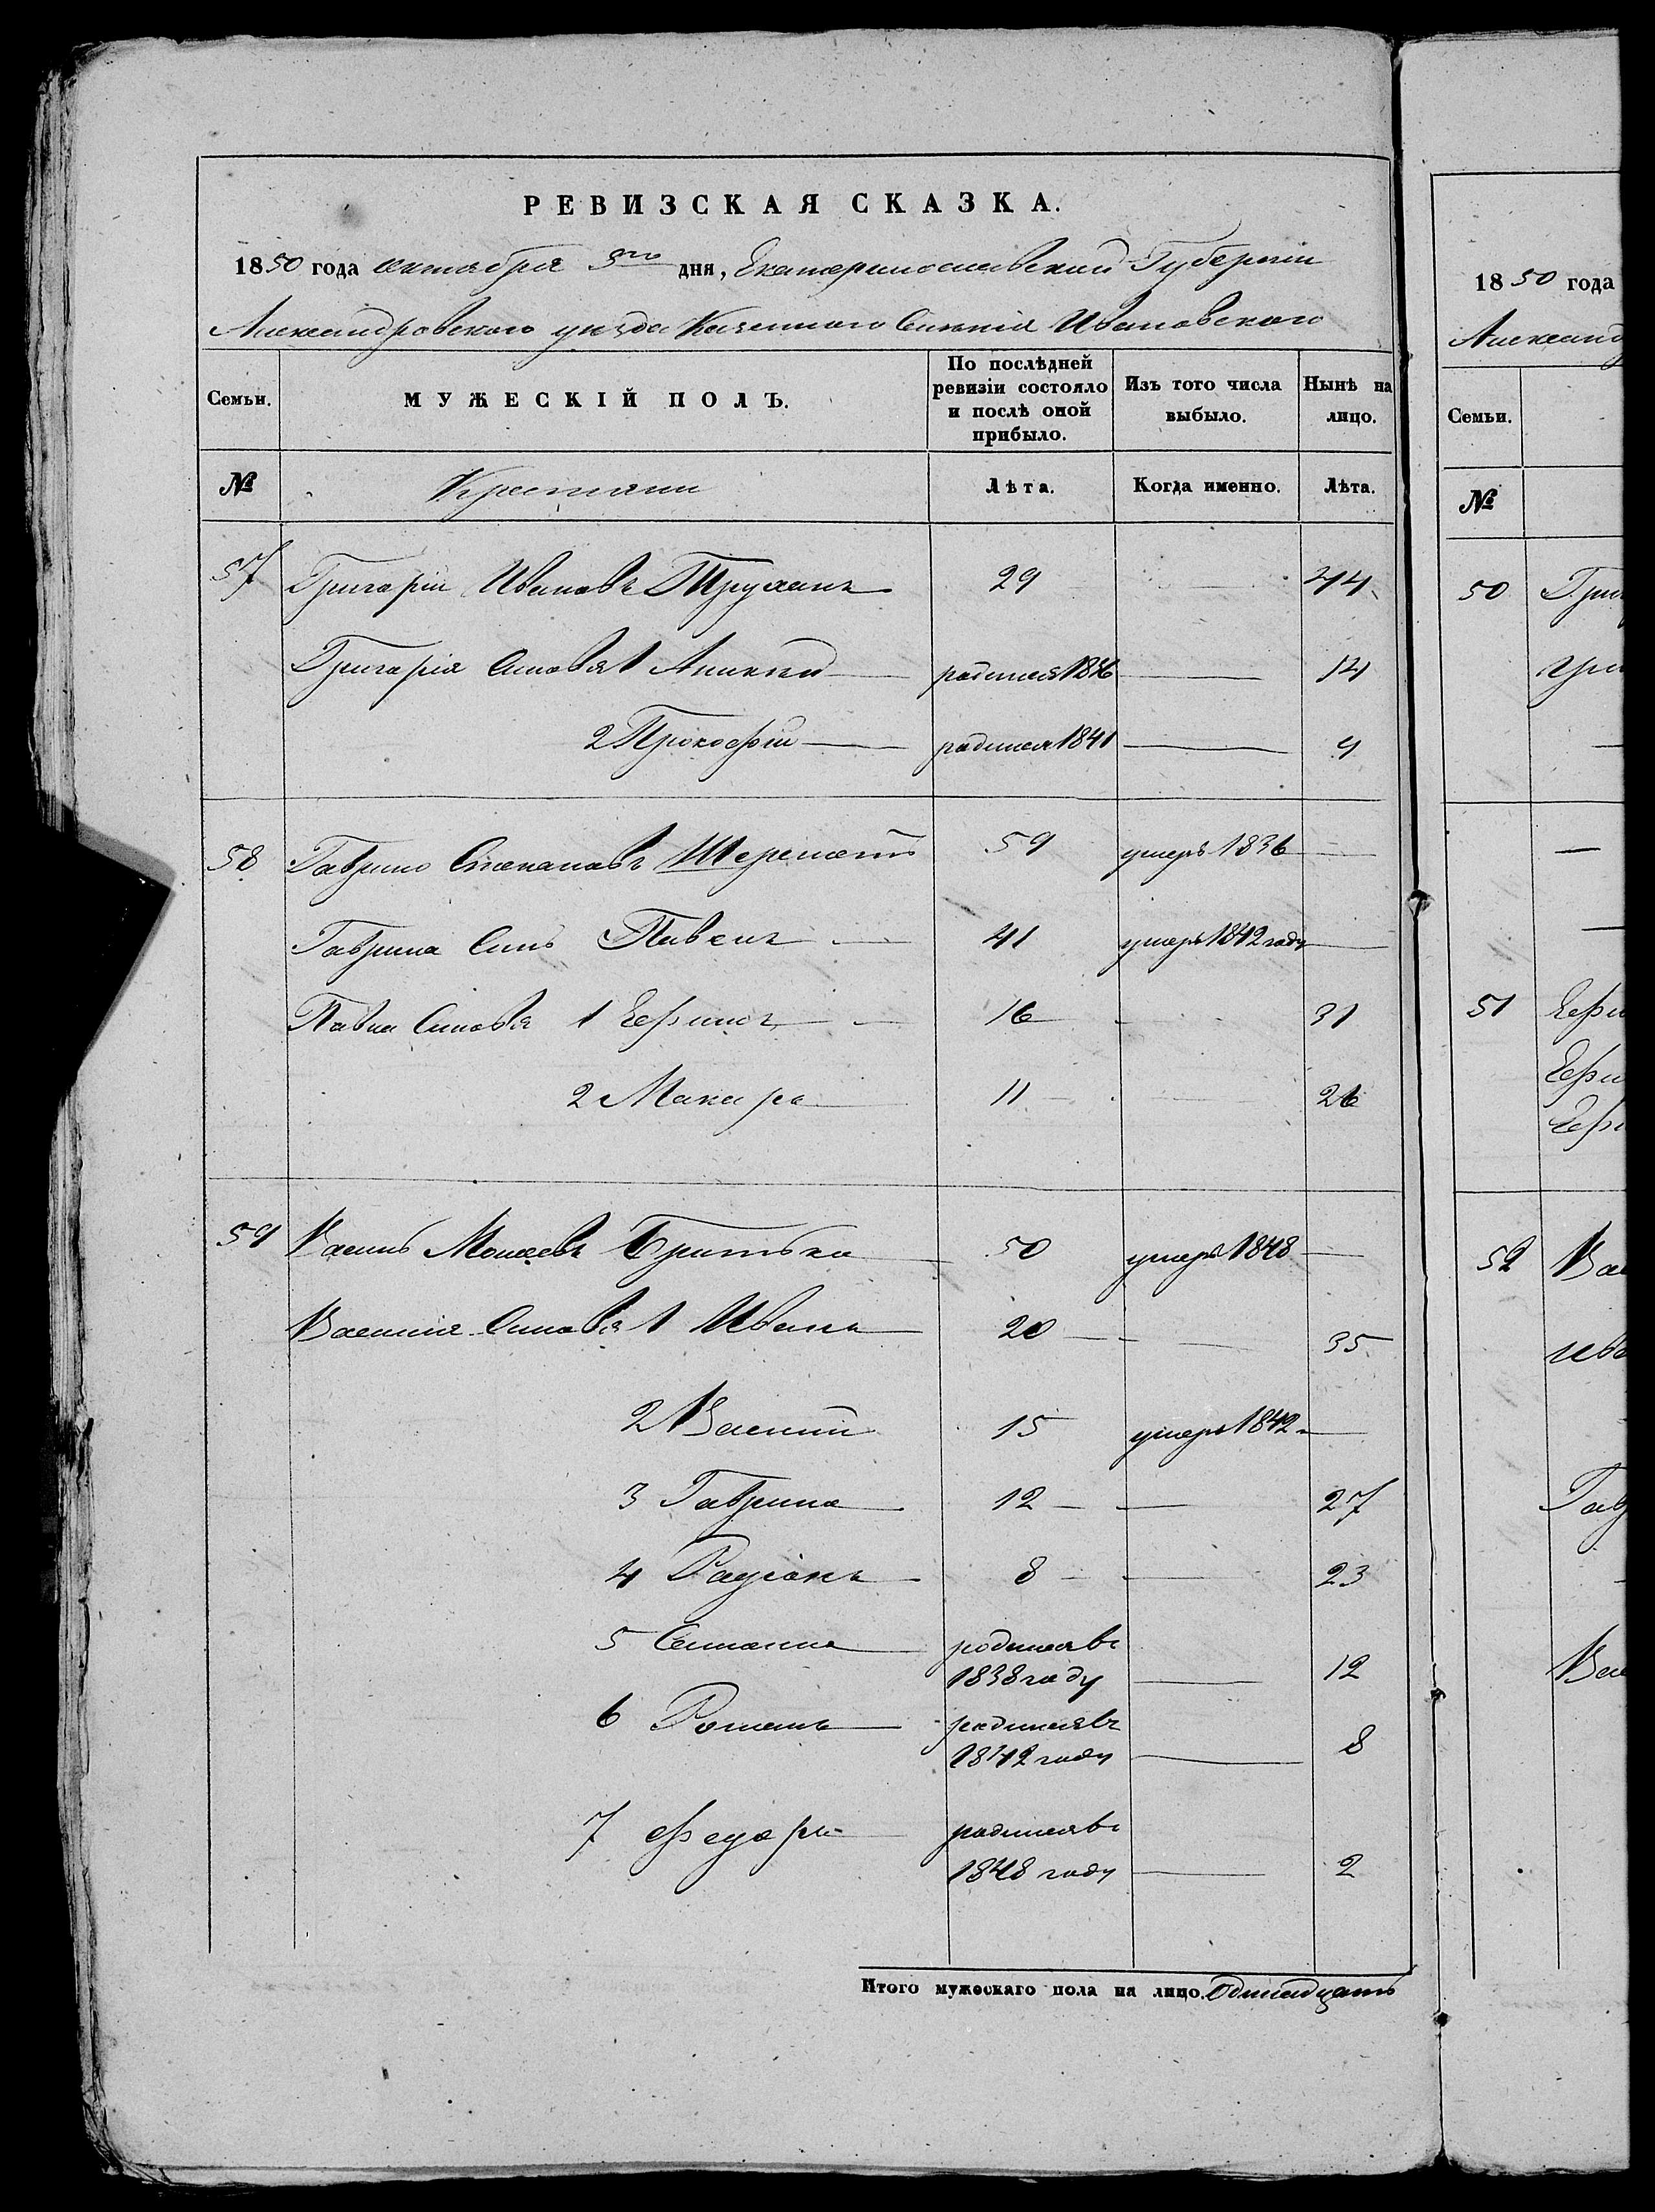 РЕВИЗСКАЯ СКАЗКА.
1850 года октября 5го дня, Екатеринославской Губернии
Александровского уезда Казенного Селения Ивановского
Семьи.
МУЖЕСКІЙ ПОЛЪ.
По послѣдней ревизіи состояло и послѣ оной прибыло.
Изъ того числа выбыло.
Нынѣ на лицо.
№ Крестяни Лѣта. Когда именно. Лѣта.
57 Григорій Ивановъ Труханъ 29 — 44
Григорія Синовя 1 родился 1836 — 14
2 Прокофій — родился 1841 — 9
58 Гаврило Степановъ Шереметъ 59 умеръ 1836 —
Гаврила Синъ Павелъ — 41 умеръ 1842 году —
Павла Синовя 1 Ефимъ — 16 — 31
2 Макаръ 11 — 26
59 Василь Моисеевъ Бритвка 50 умеръ 1848 —
Василія Синовя 1 Иванъ 20 — 35
2 Василій 15 умеръ 1842 —
3 Гаврила 12 — 27
4 Радіонъ 8 — 23
5 родился въ
1838 году — 12
6 Романъ — родился въ
1842 году — 8
7 Федоръ родился въ
1848 году — 2
Итого мужескаго пола на лицо. Одинадцать
1850 года
Александ
Семьи.
№
50 Гри
Гри
—
—
—
51 Ефи
Ефи
Ефи
52 Вас
Ива
Гав
Вас